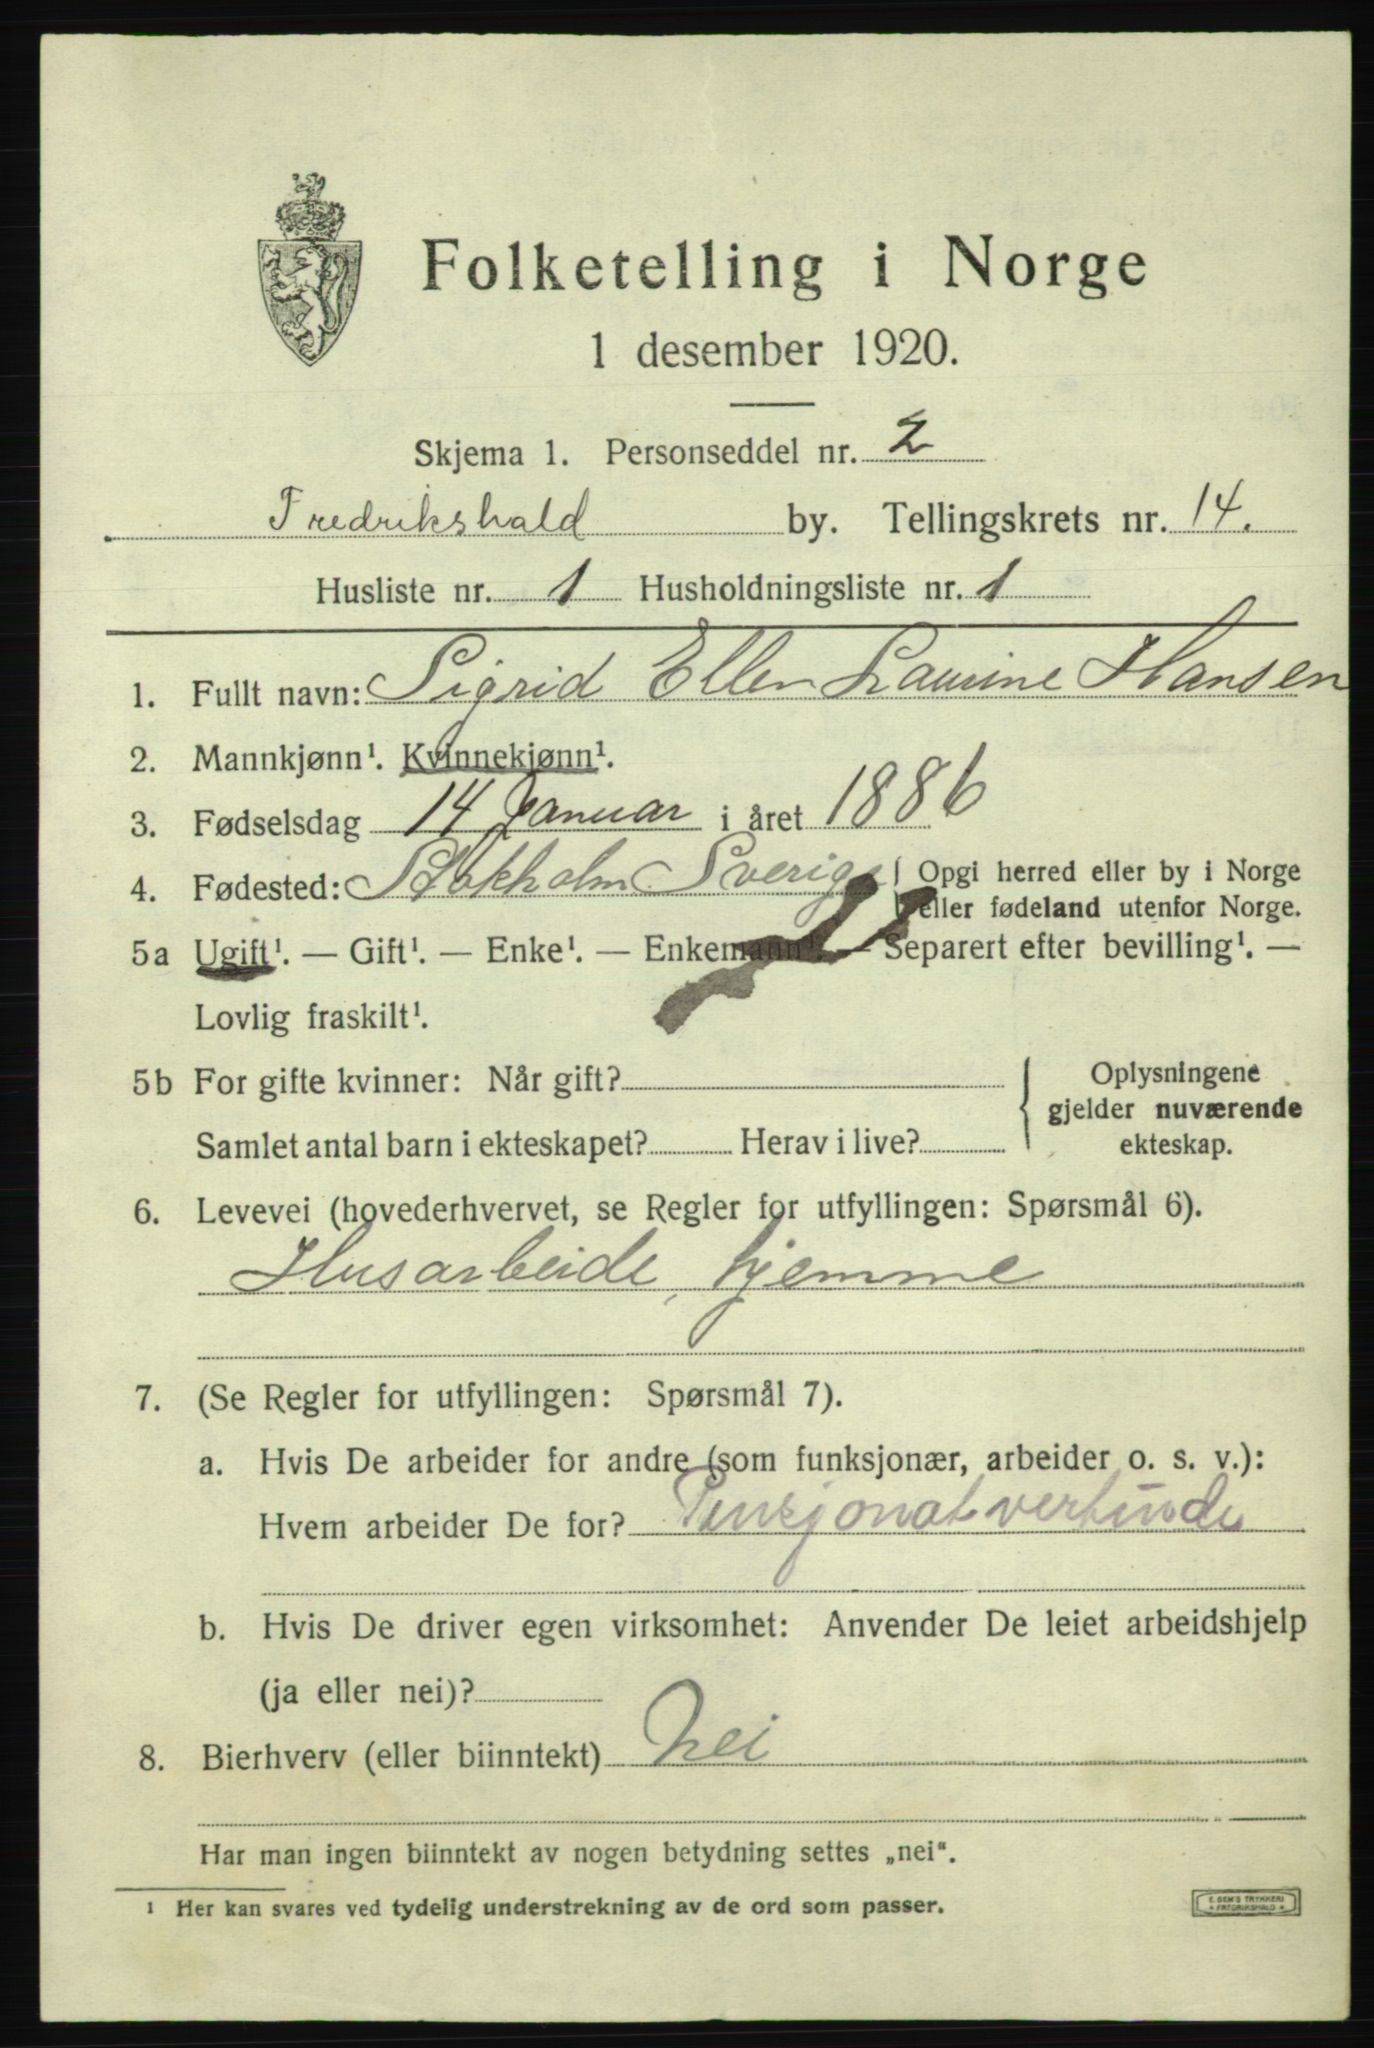 Folketelling i Norge
1 desember 1920.
Skjema 1. Personseddel nr. 2
Fredrikshald by. Tellingskrets nr. 14.
Husliste nr. 1 Husholdningsliste nr. 1
1. Fullt navn: Sigrid Ellen Laurine Hansen
2. Mannkjønn¹. Kvinnekjønn¹.
3. Fødselsdag 14 Januar i året 1886
4. Fødested: Stokholm Sverige { Opgi herred eller by i Norge
eller fødeland utenfor Norge.
5a Ugift¹. — Gift¹. — Enke¹. — Enkemann¹. — Separert efter bevilling¹. —
Lovlig fraskilt¹.
5b For gifte kvinner: Når gift?
Samlet antal barn i ekteskapet? Herav i live?
{ Oplysningene
gjelder nuværende
ekteskap.
6. Levevei (hovederhvervet, se Regler for utfyllingen: Spørsmål 6).
Husarbeide, hjemme
7. (Se Regler for utfyllingen: Spørsmål 7).
a. Hvis De arbeider for andre (som funksjonær, arbeider o. s. v.):
Hvem arbeider De for?
b. Hvis De driver egen virksomhet: Anvender De leiet arbeidshjelp
(ja eller nei)?
8. Bierhverv (eller biinntekt) Nei
Har man ingen biinntekt av nogen betydning settes „nei“.
¹ Her kan svares ved tydelig understrekning av de ord som passer.
E. SEM'S TRYKKERI
* FREDRIKSHALD *